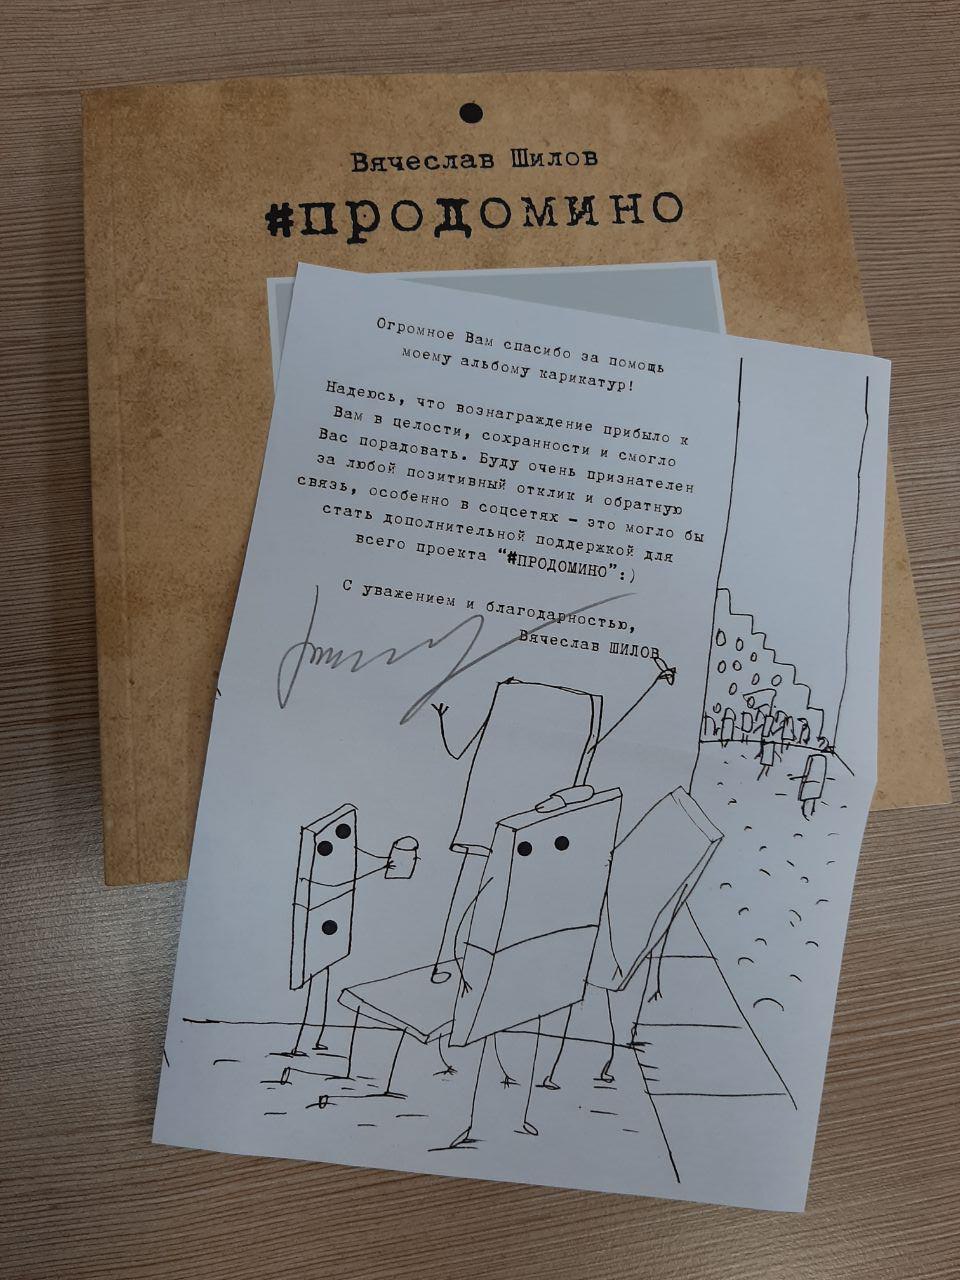 Вячеслав Шилов
#продомино
Огромное Вам спасибо за помощь
моему альбому карикатур!
Надеюсь, что вознаграждение прибыло к
Вам в целости, сохранности и смогло
Вас порадовать. Буду очень признателен
за любой позитивный отклик и обратную
связь, особенно в соцсетях – это могло бы
стать дополнительной поддержкой для
всего проекта “#ПРОДОМИНО”:)
С уважением и благодарностью,
Вячеслав ШИЛОВ